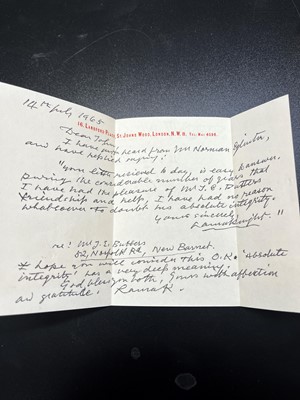 16, Langford Place, St. Johns Wood, London, N.W.8.
14th July 1965
Dear John,
I have now heard from Mr Norman
and have replied saying:
"Your letter recieved to day, is easy to answer.
During the considerable number of years that
I have had the pleasure of Mr J.E. Butters
friendship and help, I have had no reason
whatsoever to doubt his absolute integrity.
Yours sincerely,
re: Mr J.E. Butters
52, Norfolk Rd, New Barnet.
I hope you will consider this O.K. "Absolute
integrity" has a very deep meaning.
God bless you both, Yours with affection
and gratitude.